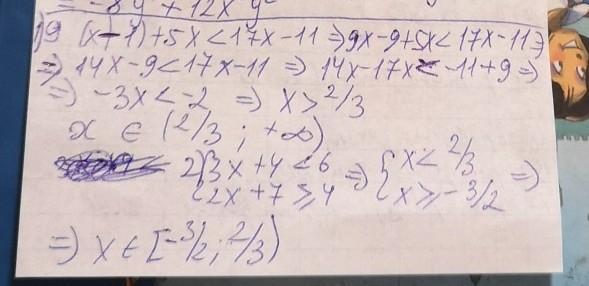 = -8y + 12x y
1) 9 (x-1)+5x<17x-11 ⇒ 9x-9+5x<17x-11 ⇒
⇒ 14x-9<17x-11 ⇒ 14x-17x< -11+9 ⇒
⇒ -3x<-2 ⇒ x>2/3
x ∈ (2/3 ; +∞)
2) { 3x+4<6 ⇒ { x<2/3 ⇒
{ 2x+7⩾4 { x⩾-3/2
⇒ x ∈ [-3/2 ; 2/3)